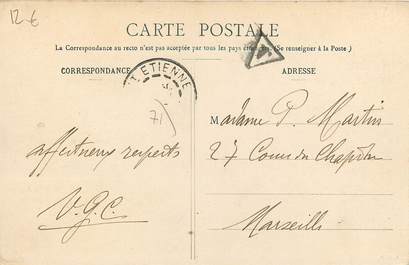 12 €
CARTE POSTALE
La Correspondance au recto n'est pas acceptée par tous les pays étrangers (Se renseigner à la Poste)
CORRESPONDANCE
ADRESSE
ST ETIENNE
71
affectueux respects
V.G.C.
Madame P. Martin
27 Cours du Chapitre
Marseille